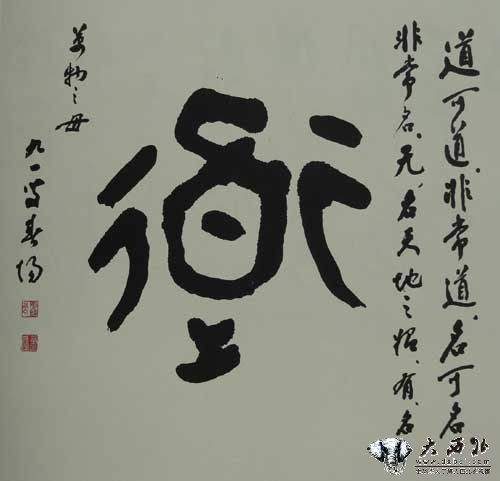 道可道、非常道、名可名
非常名、无、名天地之始、有、名
道
萬物之母
九一 春
大西北